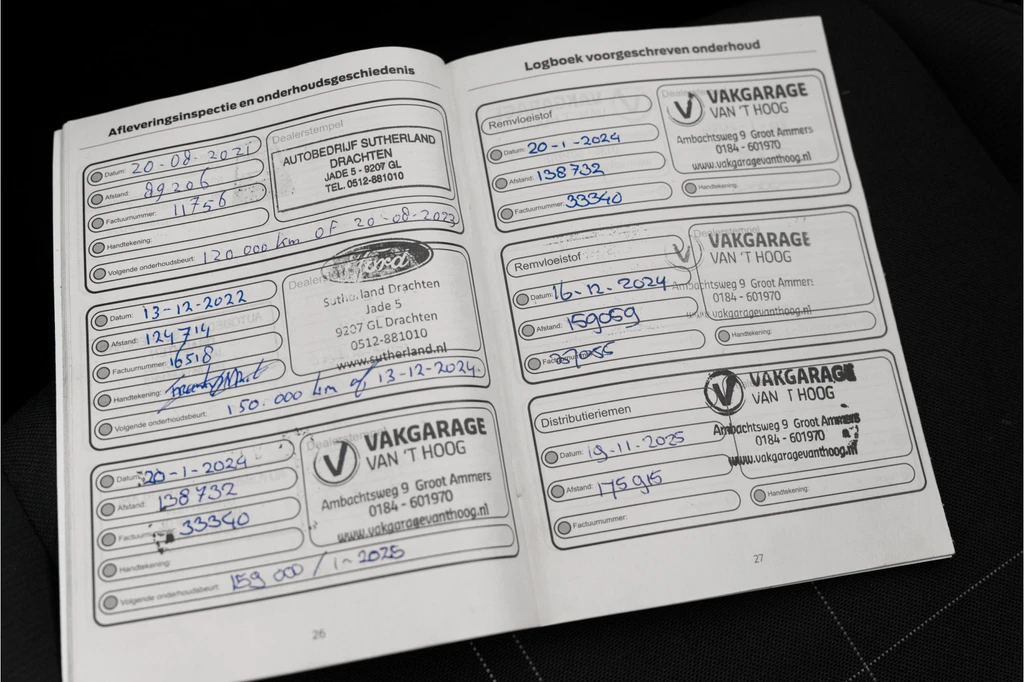 Afleveringsinspectie en onderhoudsgeschiedenis
Dealerstempel
Datum: 20-08-2021
Afstand: 89206
Factuurnummer: 11756
Handtekening:
Volgende onderhoudsbeurt: 120.000 km of 20-08-2023
AUTOBEDRIJF SUTHERLAND
DRACHTEN
JADE 5 - 9207 GL
TEL. 0512-881010
Datum: 13-12-2022
Afstand: 124714
Factuurnummer: 16518
Handtekening:
Volgende onderhoudsbeurt: 150.000 km of 13-12-2024.
Ford
Sutherland Drachten
Jade 5
9207 GL Drachten
0512-881010
www.sutherland.nl
Datum: 20-1-2024
Afstand: 138732
Factuurnummer: 33340
Handtekening:
Volgende onderhoudsbeurt: 159 000 / 1n 2025
Dealerstempel
VAKGARAGE
VAN 'T HOOG
Ambachtsweg 9 Groot Ammers
0184 - 601970
www.vakgaragevanthoog.nl
26
Logboek voorgeschreven onderhoud
Remvloeistof
Datum: 20-1-2024
Afstand: 138732
Factuurnummer: 33340
VAKGARAGE
VAN 'T HOOG
Ambachtsweg 9 Groot Ammers
0184 - 601970
www.vakgaragevanthoog.nl
Handtekening:
Remvloeistof
Datum: 16-12-2024
Afstand: 159059
Dealerstempel
VAKGARAGE
VAN 'T HOOG
Ambachtsweg 9 Groot Ammers
0184 - 601970
www.vakgaragevanthoog.nl
Handtekening:
Distributieriemen
Datum: 19-11-2025
Afstand: 175915
Factuurnummer:
VAKGARAGE
VAN 'T HOOG
Ambachtsweg 9 Groot Ammers
0184 - 601970
www.vakgaragevanthoog.nl
Handtekening:
27